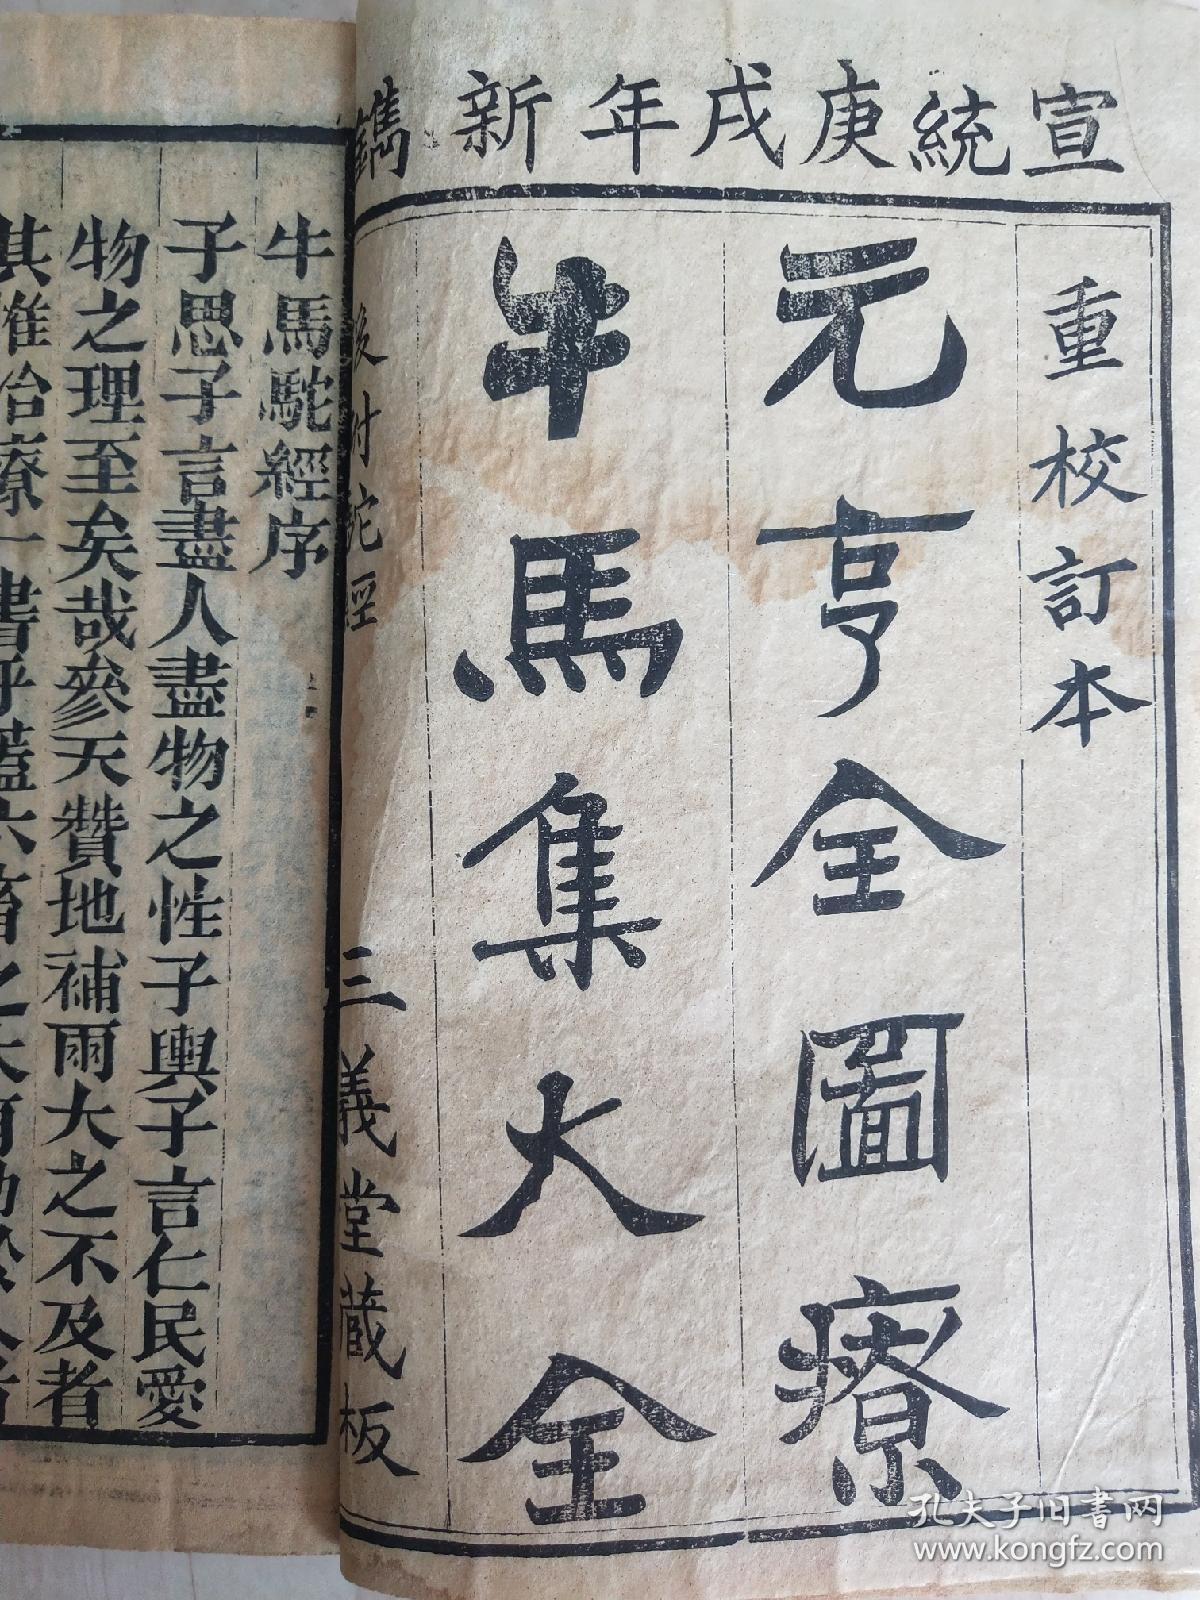 宣統庚戌年新鐫
重校訂本
元亨全圖療
牛馬集大全
後附駝經
三義堂藏板
牛馬駝經序
子思子言盡人盡物之性子輿子言仁民愛
物之理至矣哉參天贊地補雨大之不及者
其惟治療一書乎蓋六畜之大有功於人者
孔夫子旧书网
www.kongfz.com